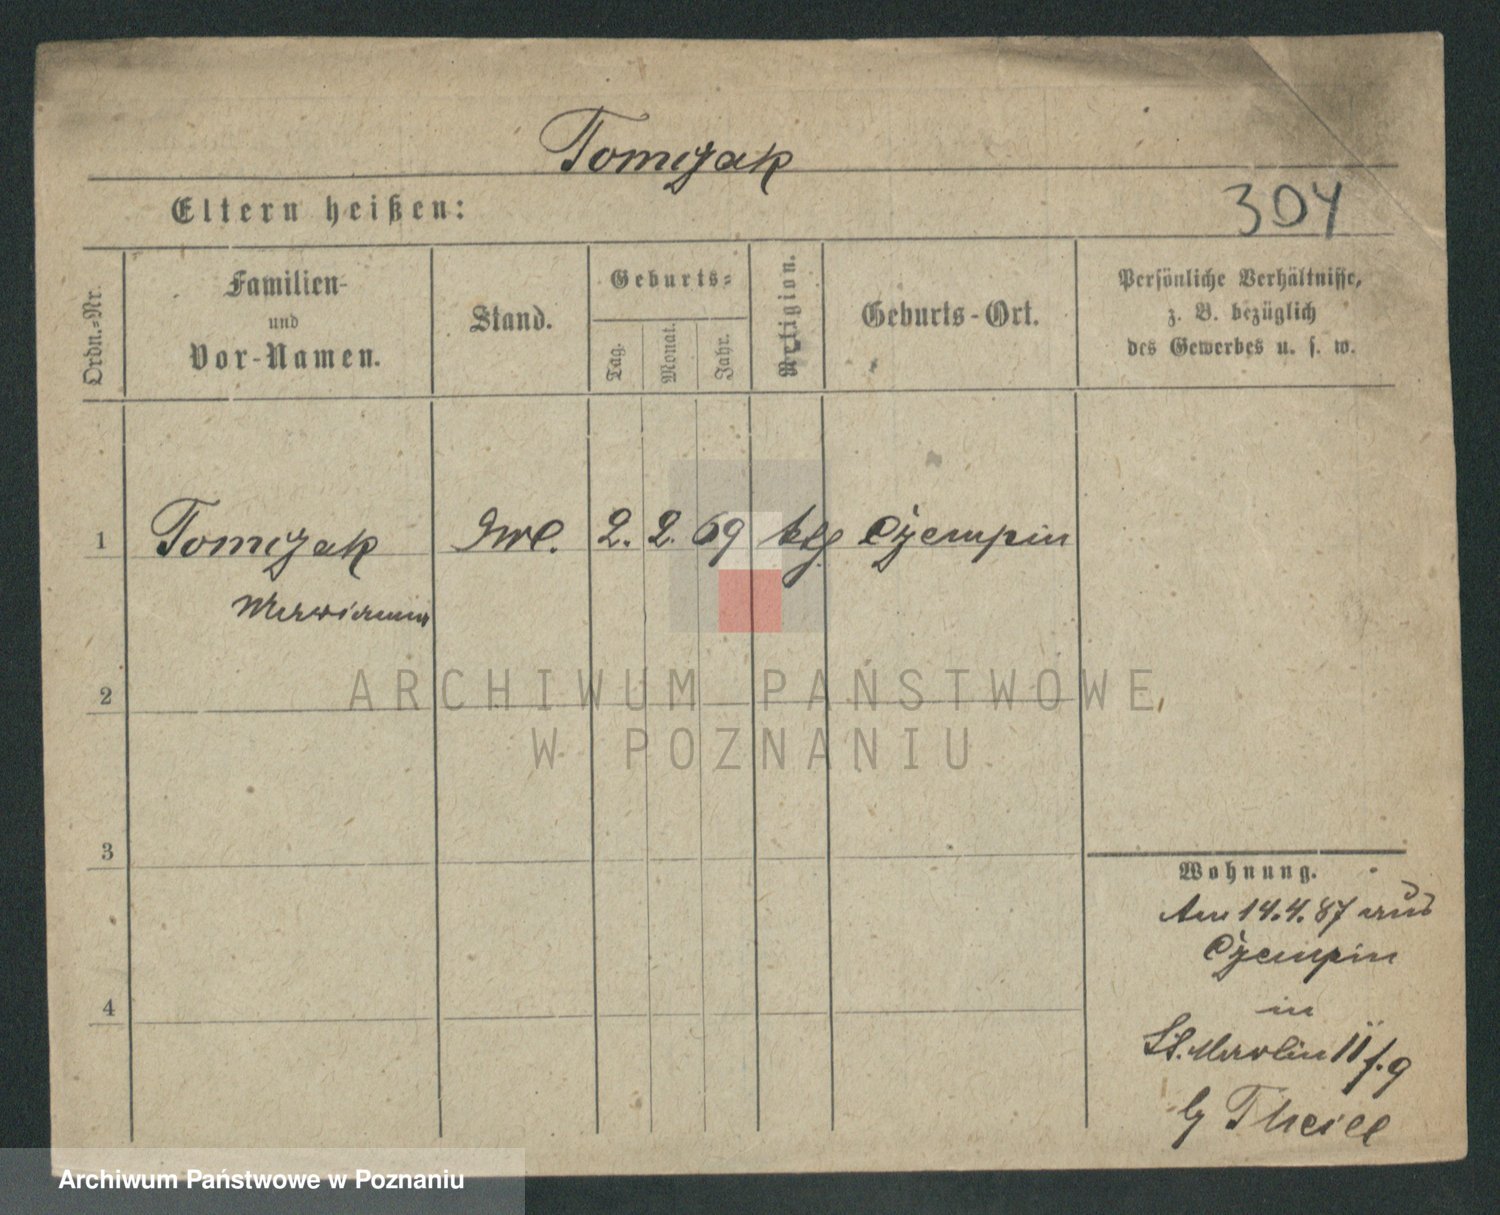 Tomczak
Eltern heißen:
304
Ordn.-Nr.
Familien-
und
Vor-Namen.
Stand.
Geburts-
Tag.
Monat.
Jahr.
Religion.
Geburts-Ort.
Persönliche Verhältnisse,
z. B. bezüglich
des Gewerbes u. s. w.
1 Tomczak 2. 2. 69 kth Czempin
Marianna
2
ARCHIWUM PAŃSTWOWE
W POZNANIU
3
Wohnung.
Am 14.4.87 aus
Czempin
in
St. Martin
Theile
4
Archiwum Państwowe w Poznaniu